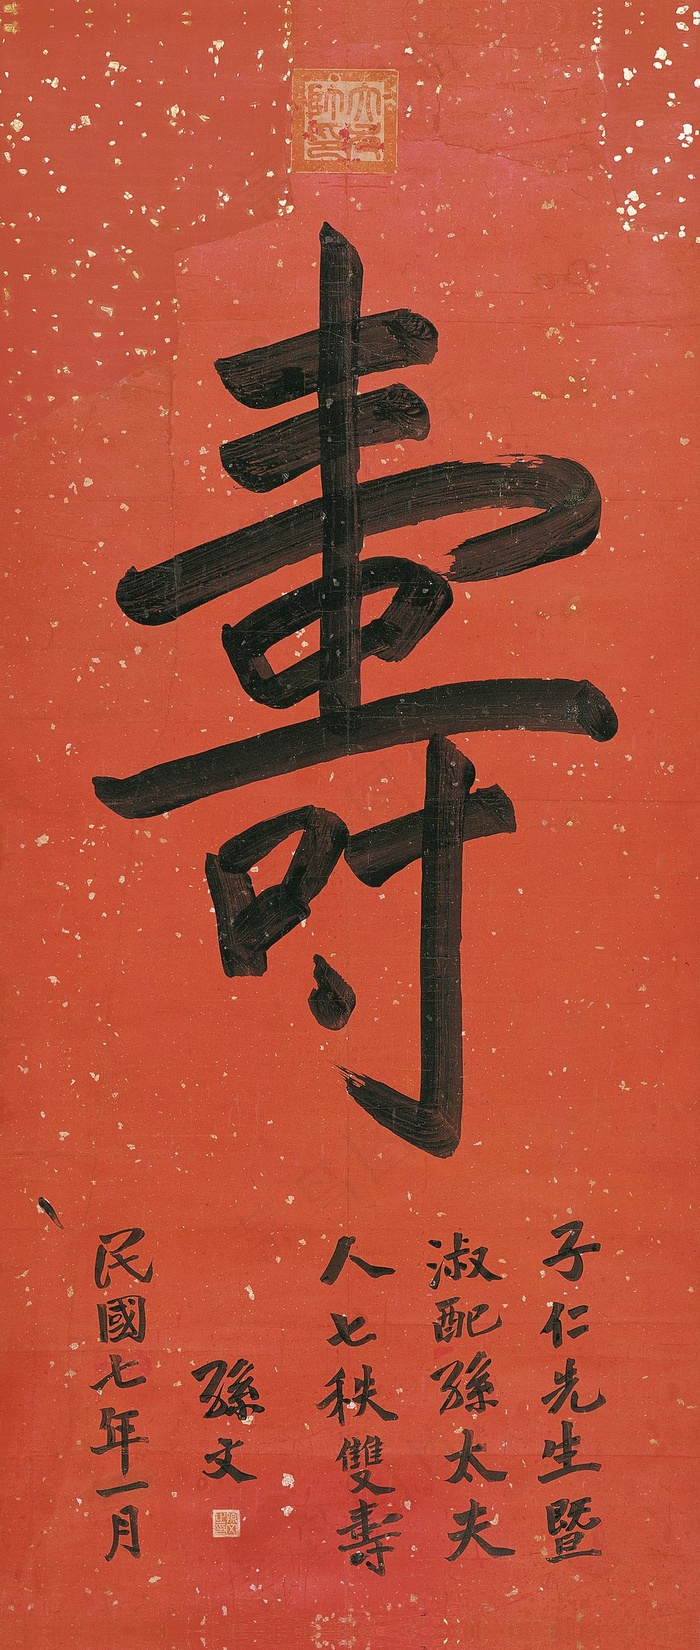 大元帥印
壽
子仁先生暨
淑配孫太夫
人七秩雙壽
孫文
民國七年一月
孫文之印